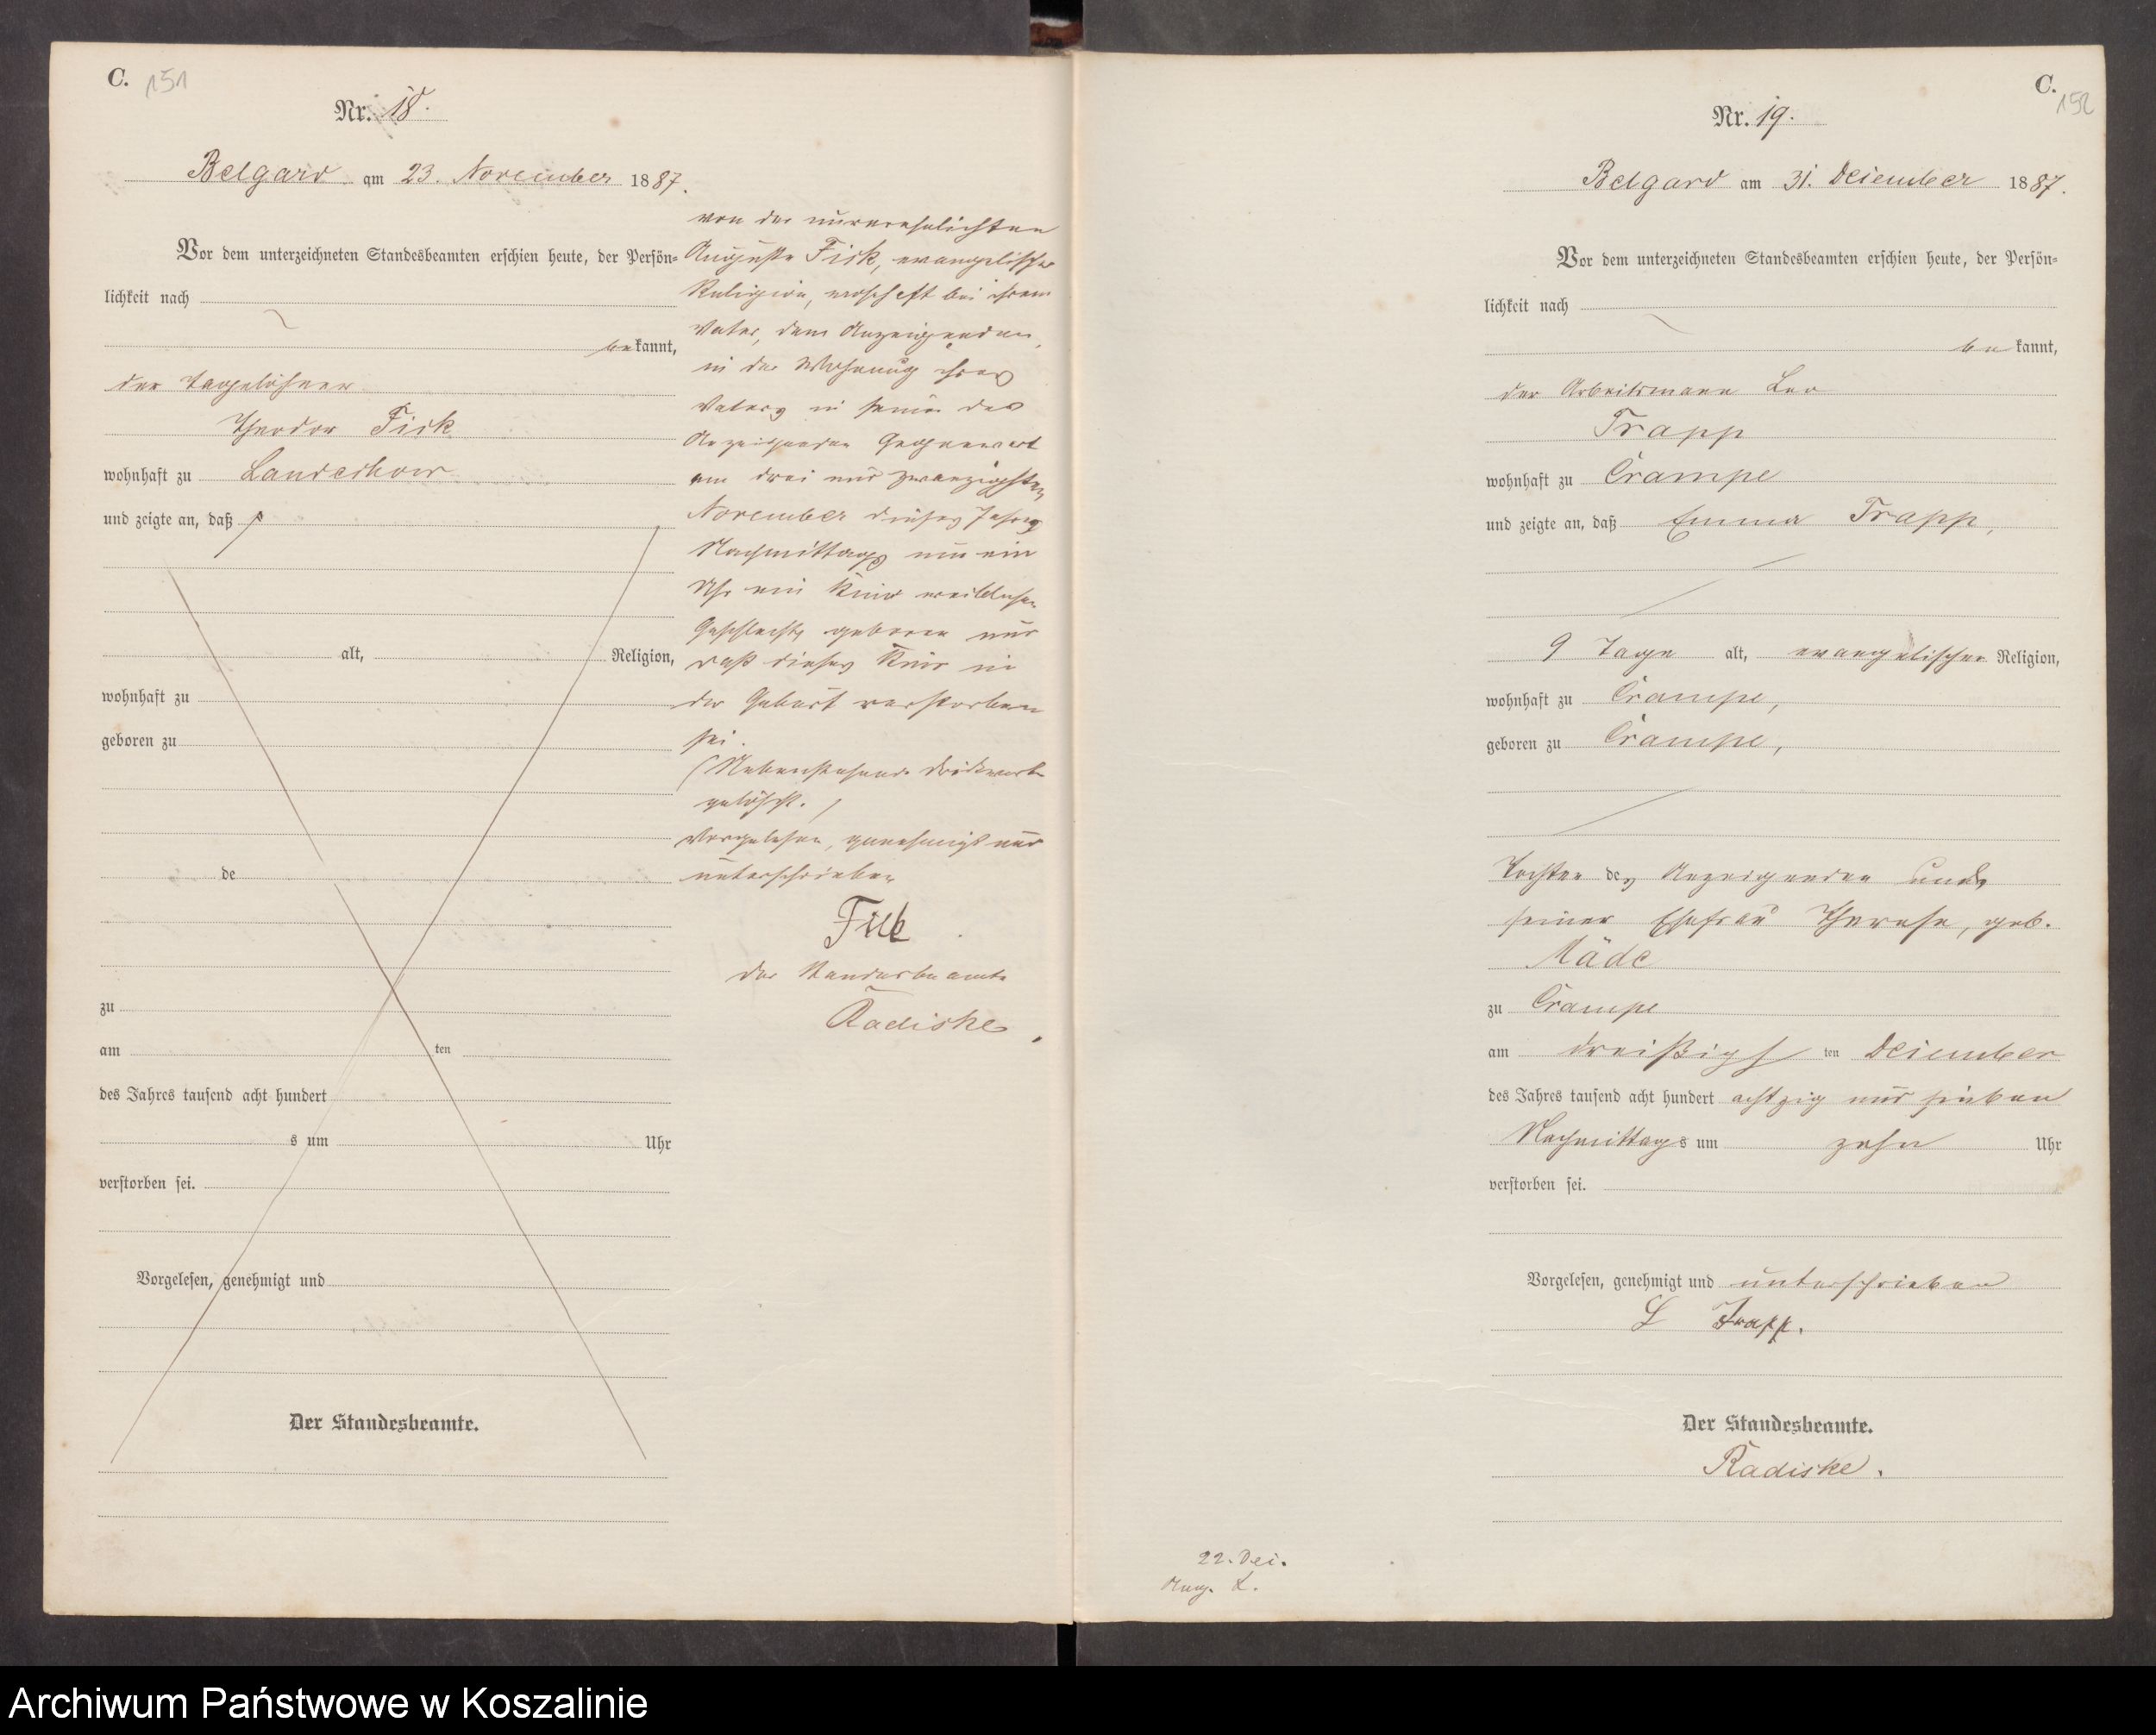 C. 151
Nr. 18.
Belgard am 23. November 1887.
Vor dem unterzeichneten Standesbeamten erschien heute, der Persön-
lichkeit nach
bekannt,
der Tagelöhner
Theodor Fick
wohnhaft zu Landechow
und zeigte an, daß
alt, Religion,
wohnhaft zu
geboren zu
de
zu
am ten
des Jahres tausend acht hundert
s um Uhr
verstorben sei.
Vorgelesen, genehmigt und
Der Standesbeamte.
von der unverehelichten
Auguste Fick, evangelischer
Religion, wohnhaft bei ihrem
Vater, dem Anzeigenden,
in der Wohnung ihres
Vaters in seiner des
Anzeigenden Gegenwart
am drei und zwanzigsten
November dieses Jahres
Nachmittags um ein
Uhr ein Kind weiblichen
Geschlechts geboren und
daß dieses Kind in
der Geburt verstorben
sei.
(Nebenstehende Druckworte
gelöscht.)
Vorgelesen, genehmigt und
unterschrieben
Fick
Der Standesbeamte
Radiske
C.
152
Nr. 19.
Belgard am 31. Dezember 1887.
Vor dem unterzeichneten Standesbeamten erschien heute, der Persön-
lichkeit nach
bekannt,
der Arbeitsmann Leo
Trapp
wohnhaft zu Crampe
und zeigte an, daß Emma Trapp,
9 Tage alt, evangelischer Religion,
wohnhaft zu Crampe,
geboren zu Crampe,
Tochter des Anzeigenden und
seiner Ehefrau Therese, geb.
Mäde
zu Crampe
am dreißigsten Dezember
des Jahres tausend acht hundert achtzig und sieben
Nachmittags um zehn Uhr
verstorben sei.
Vorgelesen, genehmigt und unterschrieben
L Trapp.
Der Standesbeamte.
Radiske.
22. Dez.
Aug. L.
Archiwum Państwowe w Koszalinie